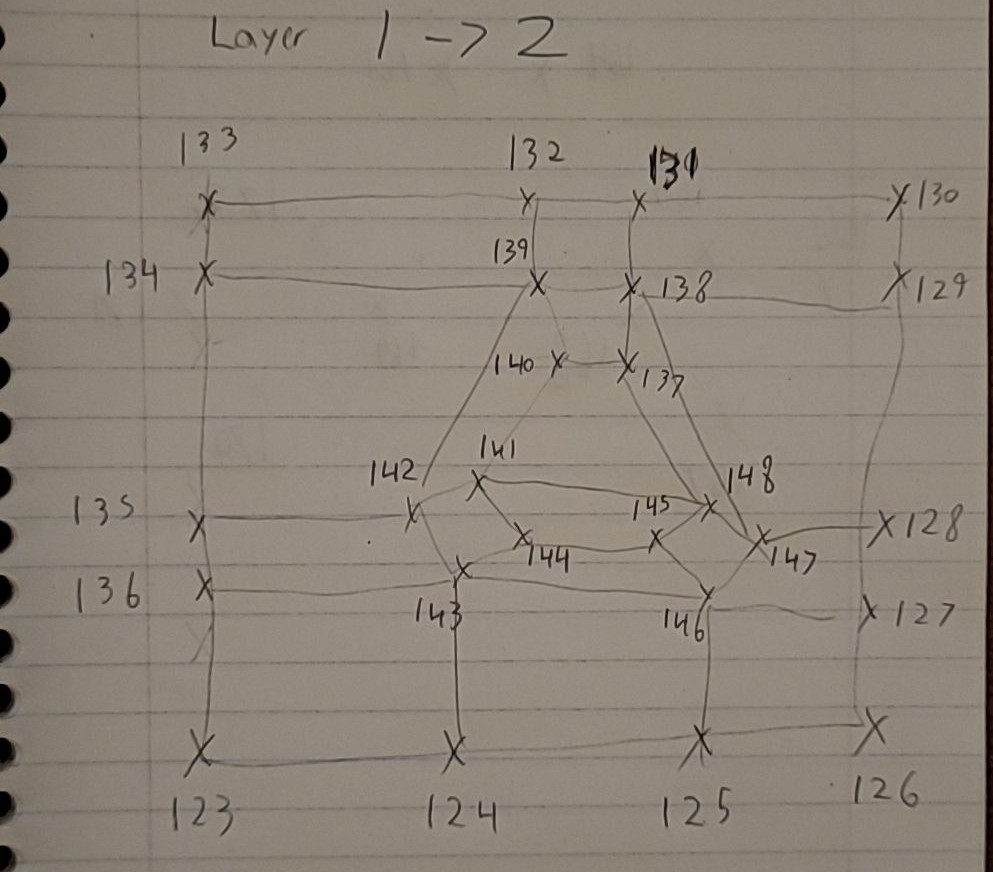 Layer 1 -> 2
133 132 131 130
139
134 138 129
140 137
141
142 148
135 145 128
144 147
136 143 146 127
123 124 125 126